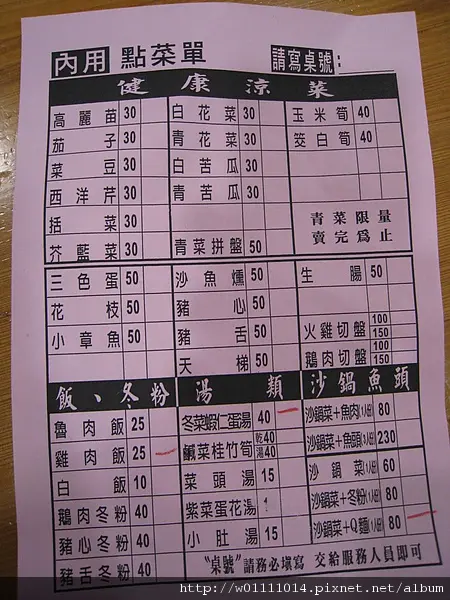 內用 點菜單 請寫桌號：
健康涼菜
高麗苗 30 白花菜 30 玉米筍 40
茄子 30 青花菜 30 筊白筍 40
菜豆 30 白苦瓜 30
西洋芹 30 青苦瓜 30
括菜 30 青菜限量
芥藍菜 30 青菜拼盤 50 賣完為止
三色蛋 50 沙魚燻 50 生腸 50
花枝 50 豬心 50
小章魚 50 豬舌 50 火雞切盤 100 150
天梯 50 鵝肉切盤 100 150
飯、冬粉 湯類 沙鍋魚頭
魯肉飯 25 冬菜蝦仁蛋湯 40 沙鍋菜+魚肉(1人份) 80
雞肉飯 25 鹹菜桂竹筍 乾40 湯40 沙鍋菜+魚頭(1份) 230
白飯 10 菜頭湯 15 沙鍋菜(1人份) 60
鵝肉冬粉 40 紫菜蛋花湯 沙鍋菜+冬粉(1人份) 80
豬心冬粉 40 小肚湯 15 沙鍋菜+Q麵(1人份) 80
豬舌冬粉 40 "桌號"請務必填寫 交給服務人員即可
http://w01111014.pixnet.net/album